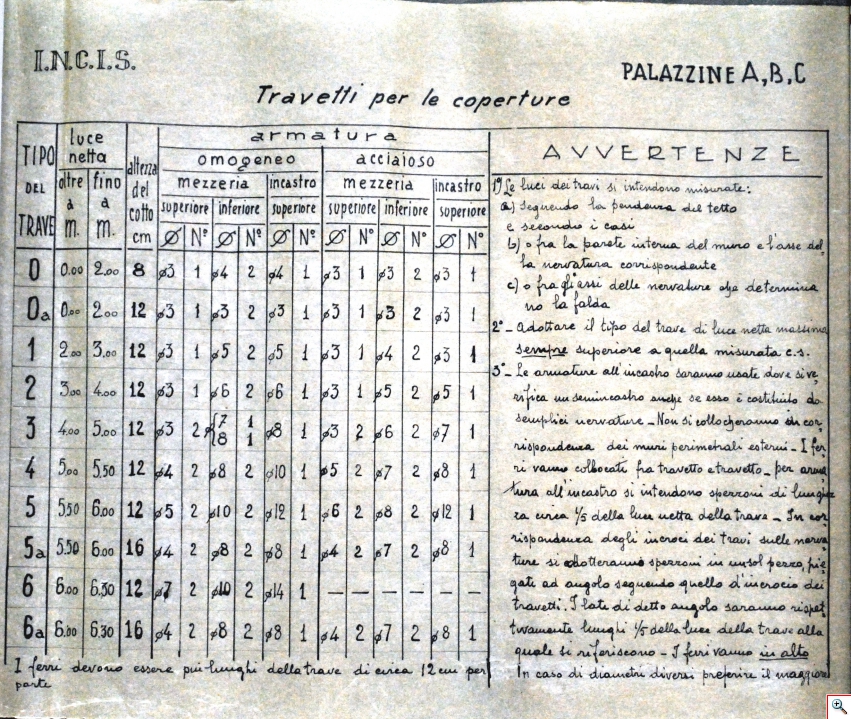 I.N.C.I.S.
PALAZZINE A, B, C
Travetti per le coperture
TIPO DEL TRAVE | luce netta | altezza del cotto cm | armatura
omogeneo | acciaioso
oltre a m. | fino a m. | mezzeria | incastro | mezzeria | incastro
superiore | inferiore | superiore | superiore | inferiore | superiore
Ø N° Ø N° Ø N° Ø N° Ø N° Ø N°
0 0.00 2.00 8 ø3 1 ø4 2 ø4 1 ø3 1 ø3 2 ø3 1
0a 0.00 2.00 12 ø3 1 ø3 2 ø3 1 ø3 1 ø3 2 ø3 1
1 2.00 3.00 12 ø3 1 ø5 2 ø5 1 ø3 1 ø4 2 ø3 1
2 3.00 4.00 12 ø3 1 ø6 2 ø6 1 ø3 1 ø5 2 ø5 1
3 4.00 5.00 12 ø3 2 ø{7 8 1 1 ø8 1 ø3 2 ø6 2 ø7 1
4 5.00 5.50 12 ø4 2 ø8 2 ø10 1 ø5 2 ø7 2 ø8 1
5 5.50 6.00 12 ø5 2 ø10 2 ø12 1 ø6 2 ø8 2 ø12 1
5a 5.50 6.00 16 ø4 2 ø8 2 ø8 1 ø4 2 ø7 2 ø8 1
6 6.00 6.30 12 ø7 2 ø10 2 ø14 1 — — — — — —
6a 6.00 6.30 16 ø4 2 ø8 2 ø8 1 ø4 2 ø7 2 ø8 1
I ferri devono essere più lunghi della trave di circa 12 cm per
parte
AVVERTENZE
1°) Le luci dei travi si intendono misurate:
a) seguendo la pendenza del tetto
e secondo i casi
b) o fra la parete interna del muro e l'asse del
la nervatura corrispondente
c) o fra gli assi delle nervature che determina
no la falda
2° - Adottare il tipo del trave di luce netta massima
sempre superiore a quella misurata c.s.
3° - Le armature all'incastro saranno usate dove si ve
rifica un semincastro anche se esso è costituito da
semplici nervature - Non si collocheranno in cor
rispondenza dei muri perimetrali esterni - I fer
ri vanno collocati fra travetto e travetto - per arma
tura all'incastro si intendono sperroni di lunghez
za circa 1/5 della luce netta della trave - In cor
rispondenza degli incroci dei travi sulle nerva
ture si adotteranno sperroni in un sol pezzo, pie
gati ad angolo seguendo quello d'incrocio dei
travetti. I late di detto angolo saranno rispet
tivamente lunghi 1/5 della luce della trave alla
quale si riferiscono - I ferri vanno in alto
In caso di diametri diversi preferire il maggiore